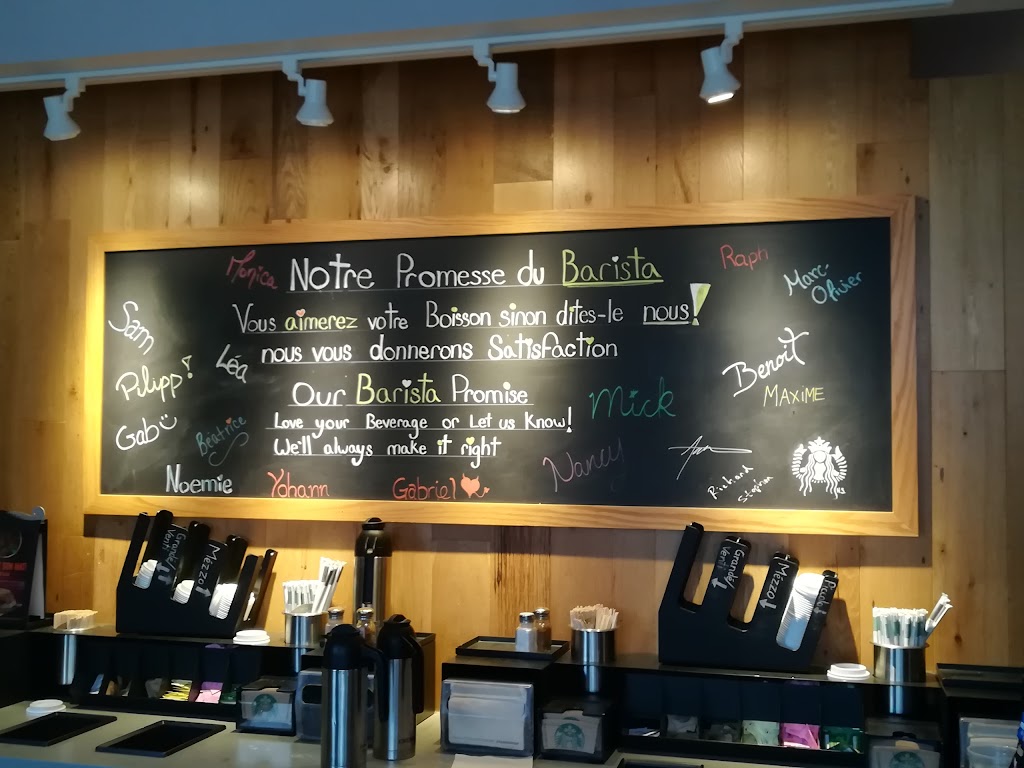 Monica
Notre Promesse du Barista
Raph
Marc-Olivier
Vous aimerez votre Boisson sinon dites-le nous!
Sam
Léa
nous vous donnerons Satisfaction
Benoit
Pilipp!
Our Barista Promise
Mick
MAXIME
Gab
Béatrice
Love your Beverage or Let us Know!
We'll always make it right
Nancy
Noemie
Yohann
Gabriel
Richard
Grande/
Venti
Mezzo
Grande/
Venti
Mezzo